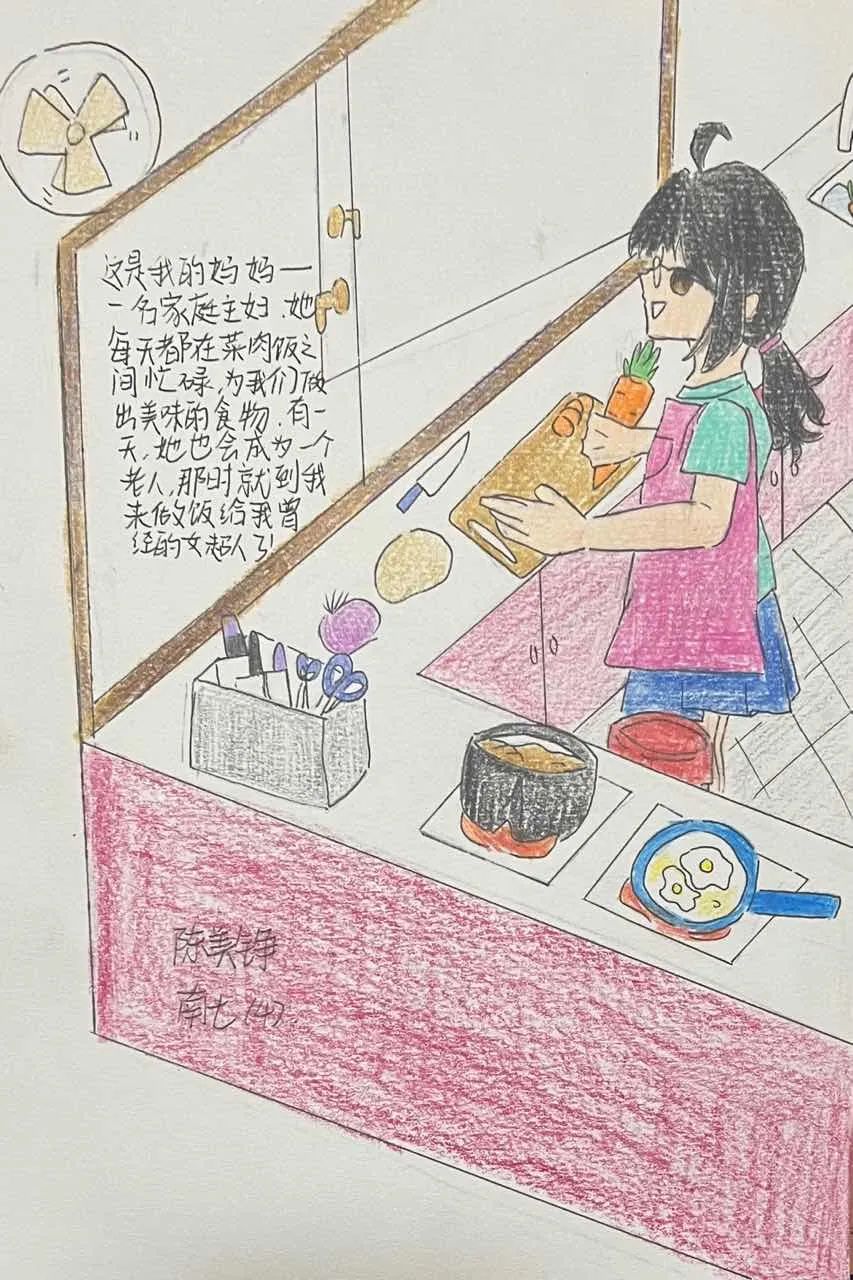 这是我的妈妈一
一名家庭主妇.她
每天都在菜肉饭之
间忙碌,为我们做
出美味的食物.有一
天,她也会成为一个
老人,那时就到我
来做饭给我曾
经的女超人了!
陈美铮
南七(4)